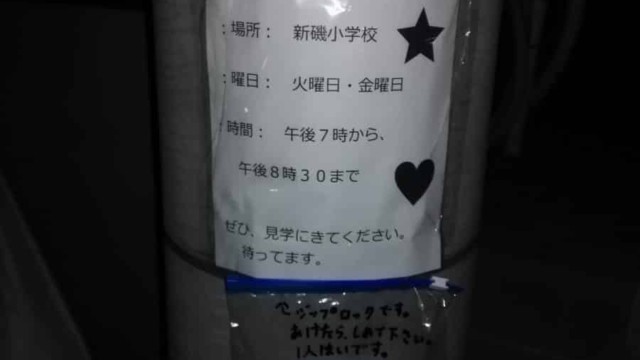 ：場所： 新磯小学校
：曜日： 火曜日・金曜日
：時間： 午後７時から、
午後８時３０まで
ぜひ、見学にきてください。
待ってます。
ジップロックです。
あけたら、しめて下さい。
1人1まいです。